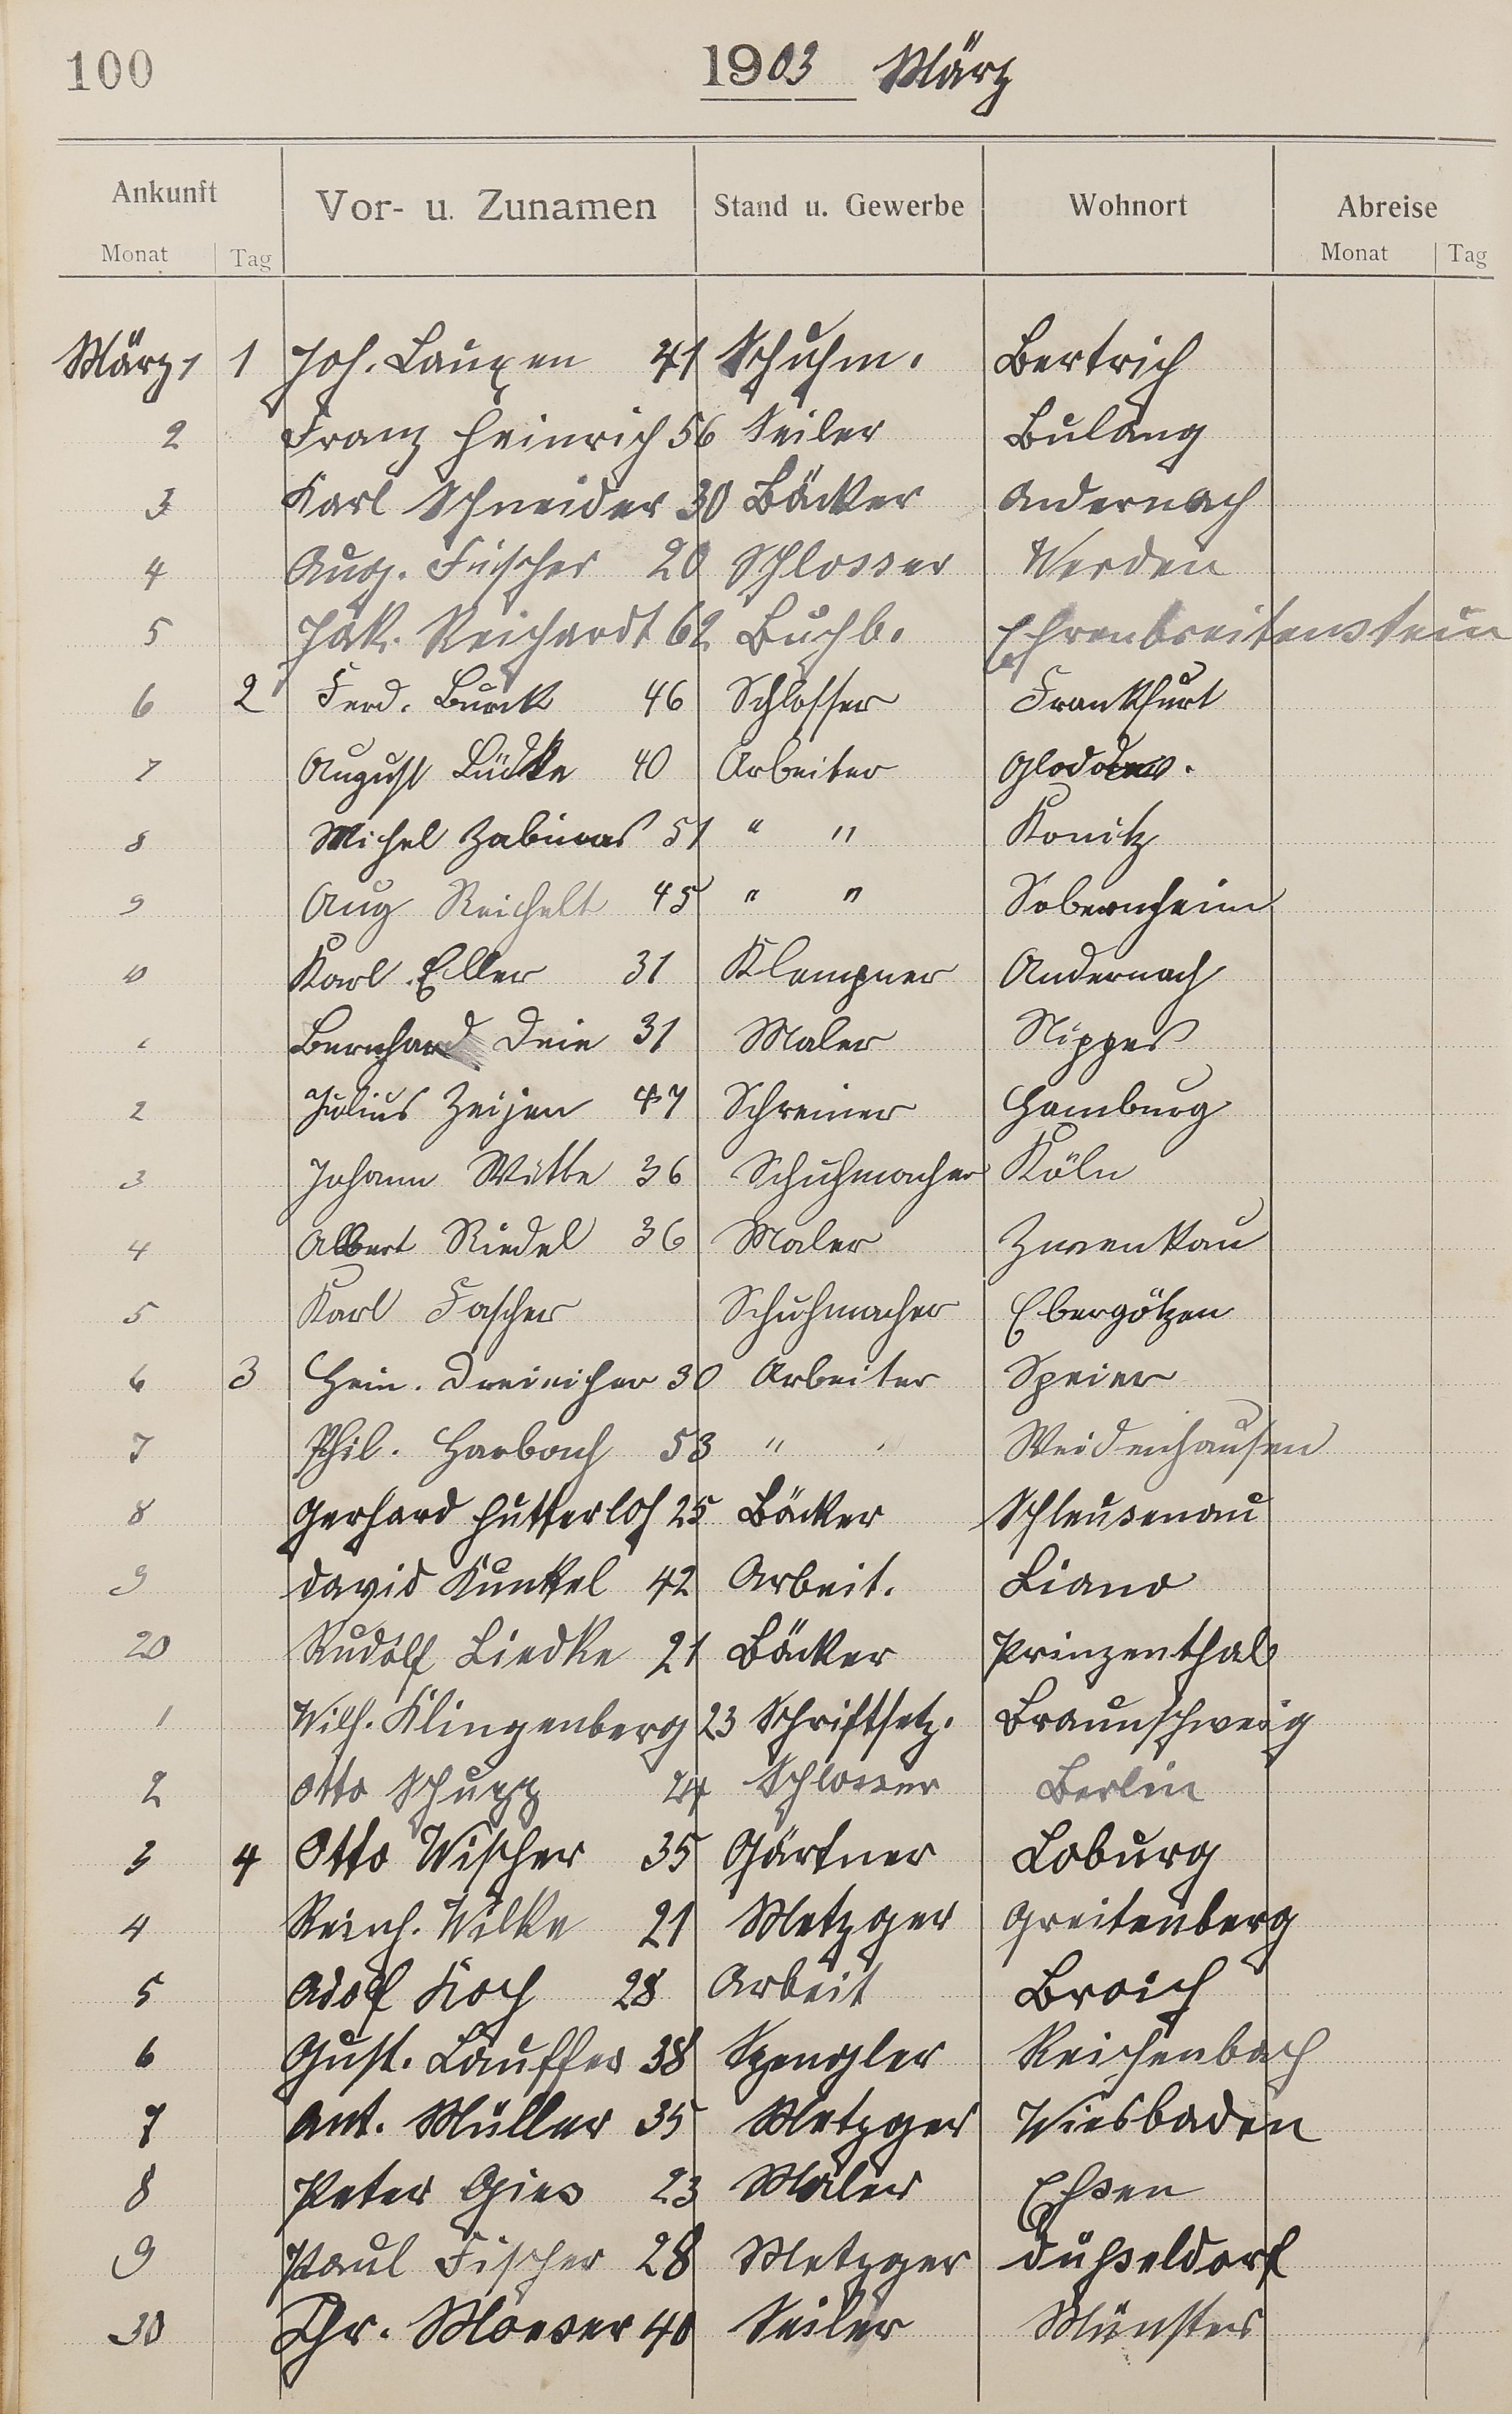 100 1903 März
Ankunft Vor- u. Zunamen Stand u. Gewerbe Wohnort Abreise
Monat Tag Monat Tag
März 1 1 Joh. Lauxen 41 Schuhm. Bertrich
2 Franz Heinrich 56 Seiler Bulang
3 Karl Schneider 30 Bäcker Andernach
4 Aug. Fischer 20 Schlosser Werden
5 Jak. Reichardt 62 Buchb. Ehrenbreitenstein
6 2 Ferd. Burck 46 Schlosser Frankfurt
7 August Lüdke 40 Arbeiter
8 Michel 51 " " Konitz
9 Aug Reichelt 45 " " Sobernheim
10 Karl Eller 31 Klempner Andernach
Bernhard Dein 31 Maler Nippes
2 Julius Zeijen 47 Schreiner Hamburg
3 Johann Witte 36 Schuhmacher Köln
4 Albert Riedel 36 Maler Zwenkau
5 Karl Fascher Schuhmacher Ebergötzen
6 3 Hein. Dreinicher 30 Arbeiter Speier
7 Phil. Harbach 53 " " Weidenhausen
8 Gerhard Hutterloh 25 Bäcker Schleusenau
9 David Kunkel 42 Arbeit. Liano
20 Rudolf Liedke 21 Bäcker Prinzenthal
1 Wilh. Klingenberg 23 Schriftsetz. Braunschweig
2 Otto Schupp 24 Schlosser Berlin
3 4 Otto Wischer 35 Gärtner Loburg
4 Reinh. Wilke 21 Metzger Greitenberg
5 Adolf Koch 28 Arbeit Broich
6 Gust. Lauffer 38 Spengler Reichenbach
7 Ant. Müller 35 Metzger Wiesbaden
8 Peter Gies 23 Maler Eßen
9 Paul Fischer 28 Metzger Düßeldorf
30 Chr. Moeser 40 Seiler Münster